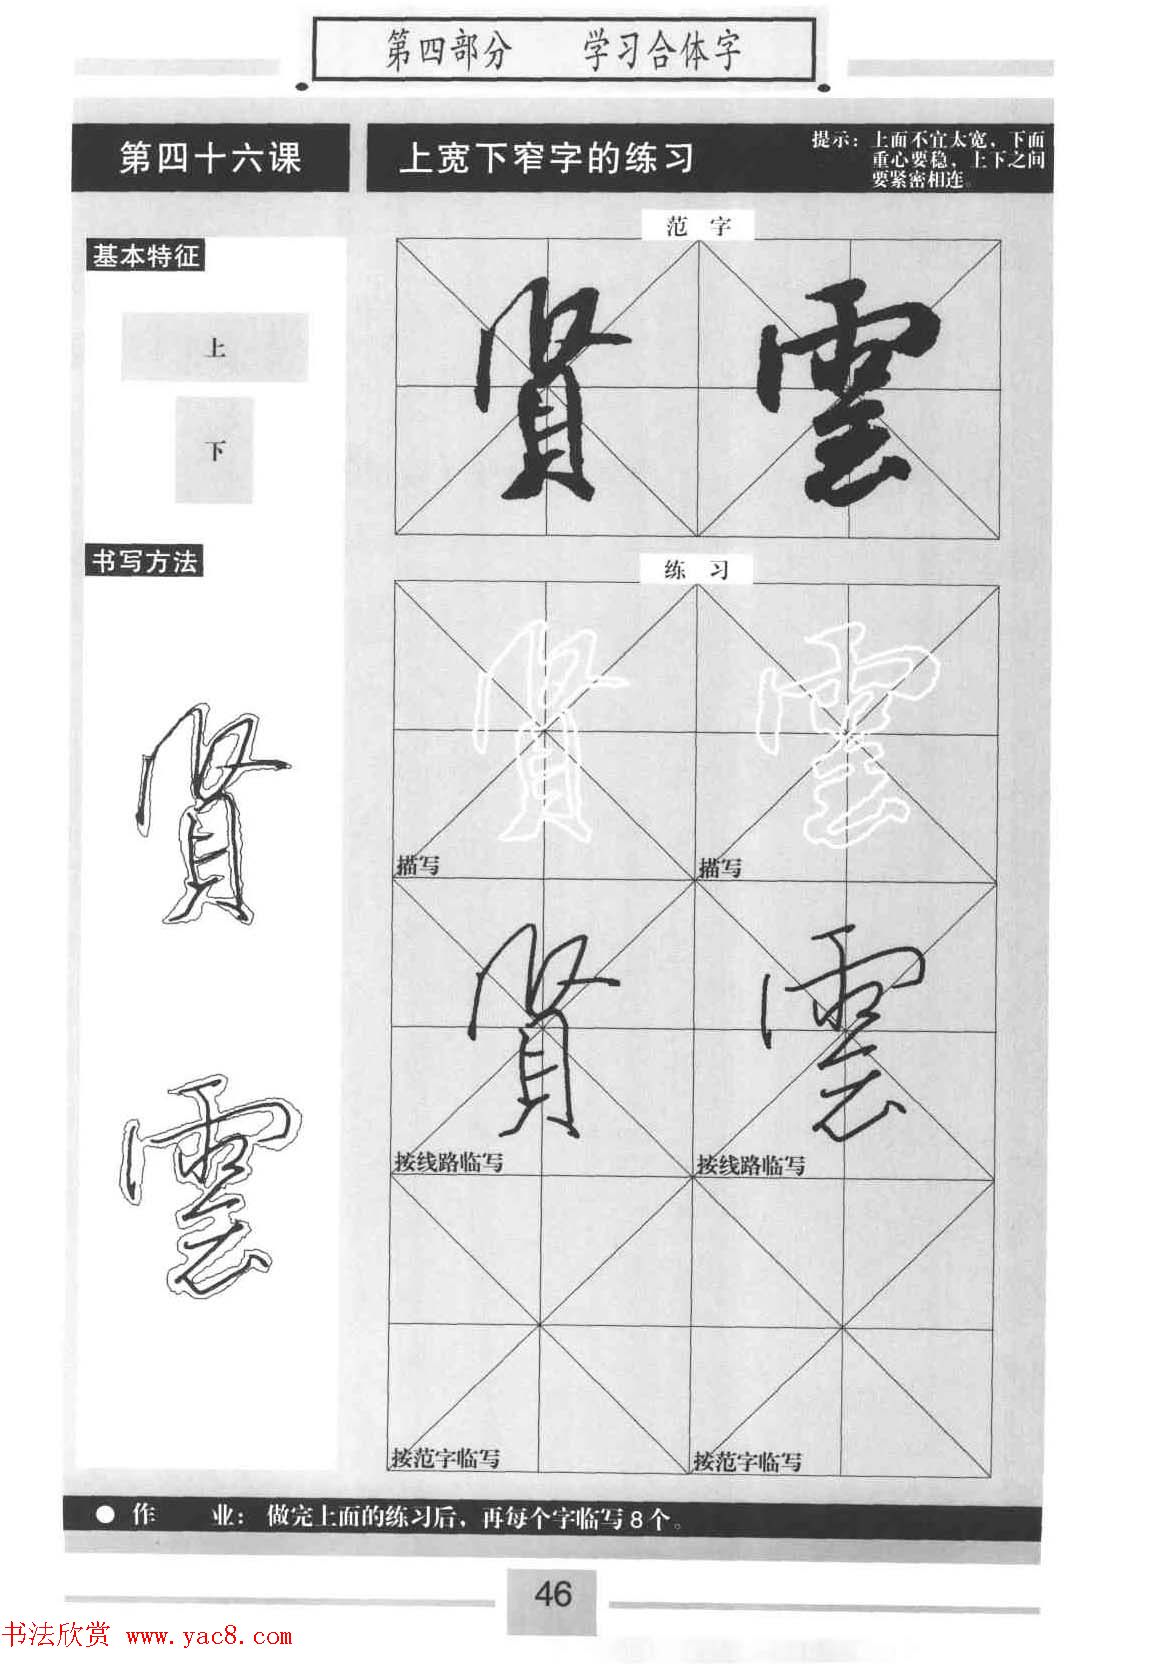 第四部分 学习合体字
第四十六课
上宽下窄字的练习
提示：上面不宜太宽，下面
重心要稳，上下之间
要紧密相连。
基本特征
上
下
书写方法
賢
雲
范字
賢 雲
练习
賢 雲
描写 描写
賢 雲
按线路临写 按线路临写
按范字临写 按范字临写
● 作 业：做完上面的练习后，再每个字临写8个。
46
书法欣赏 www.yac8.com